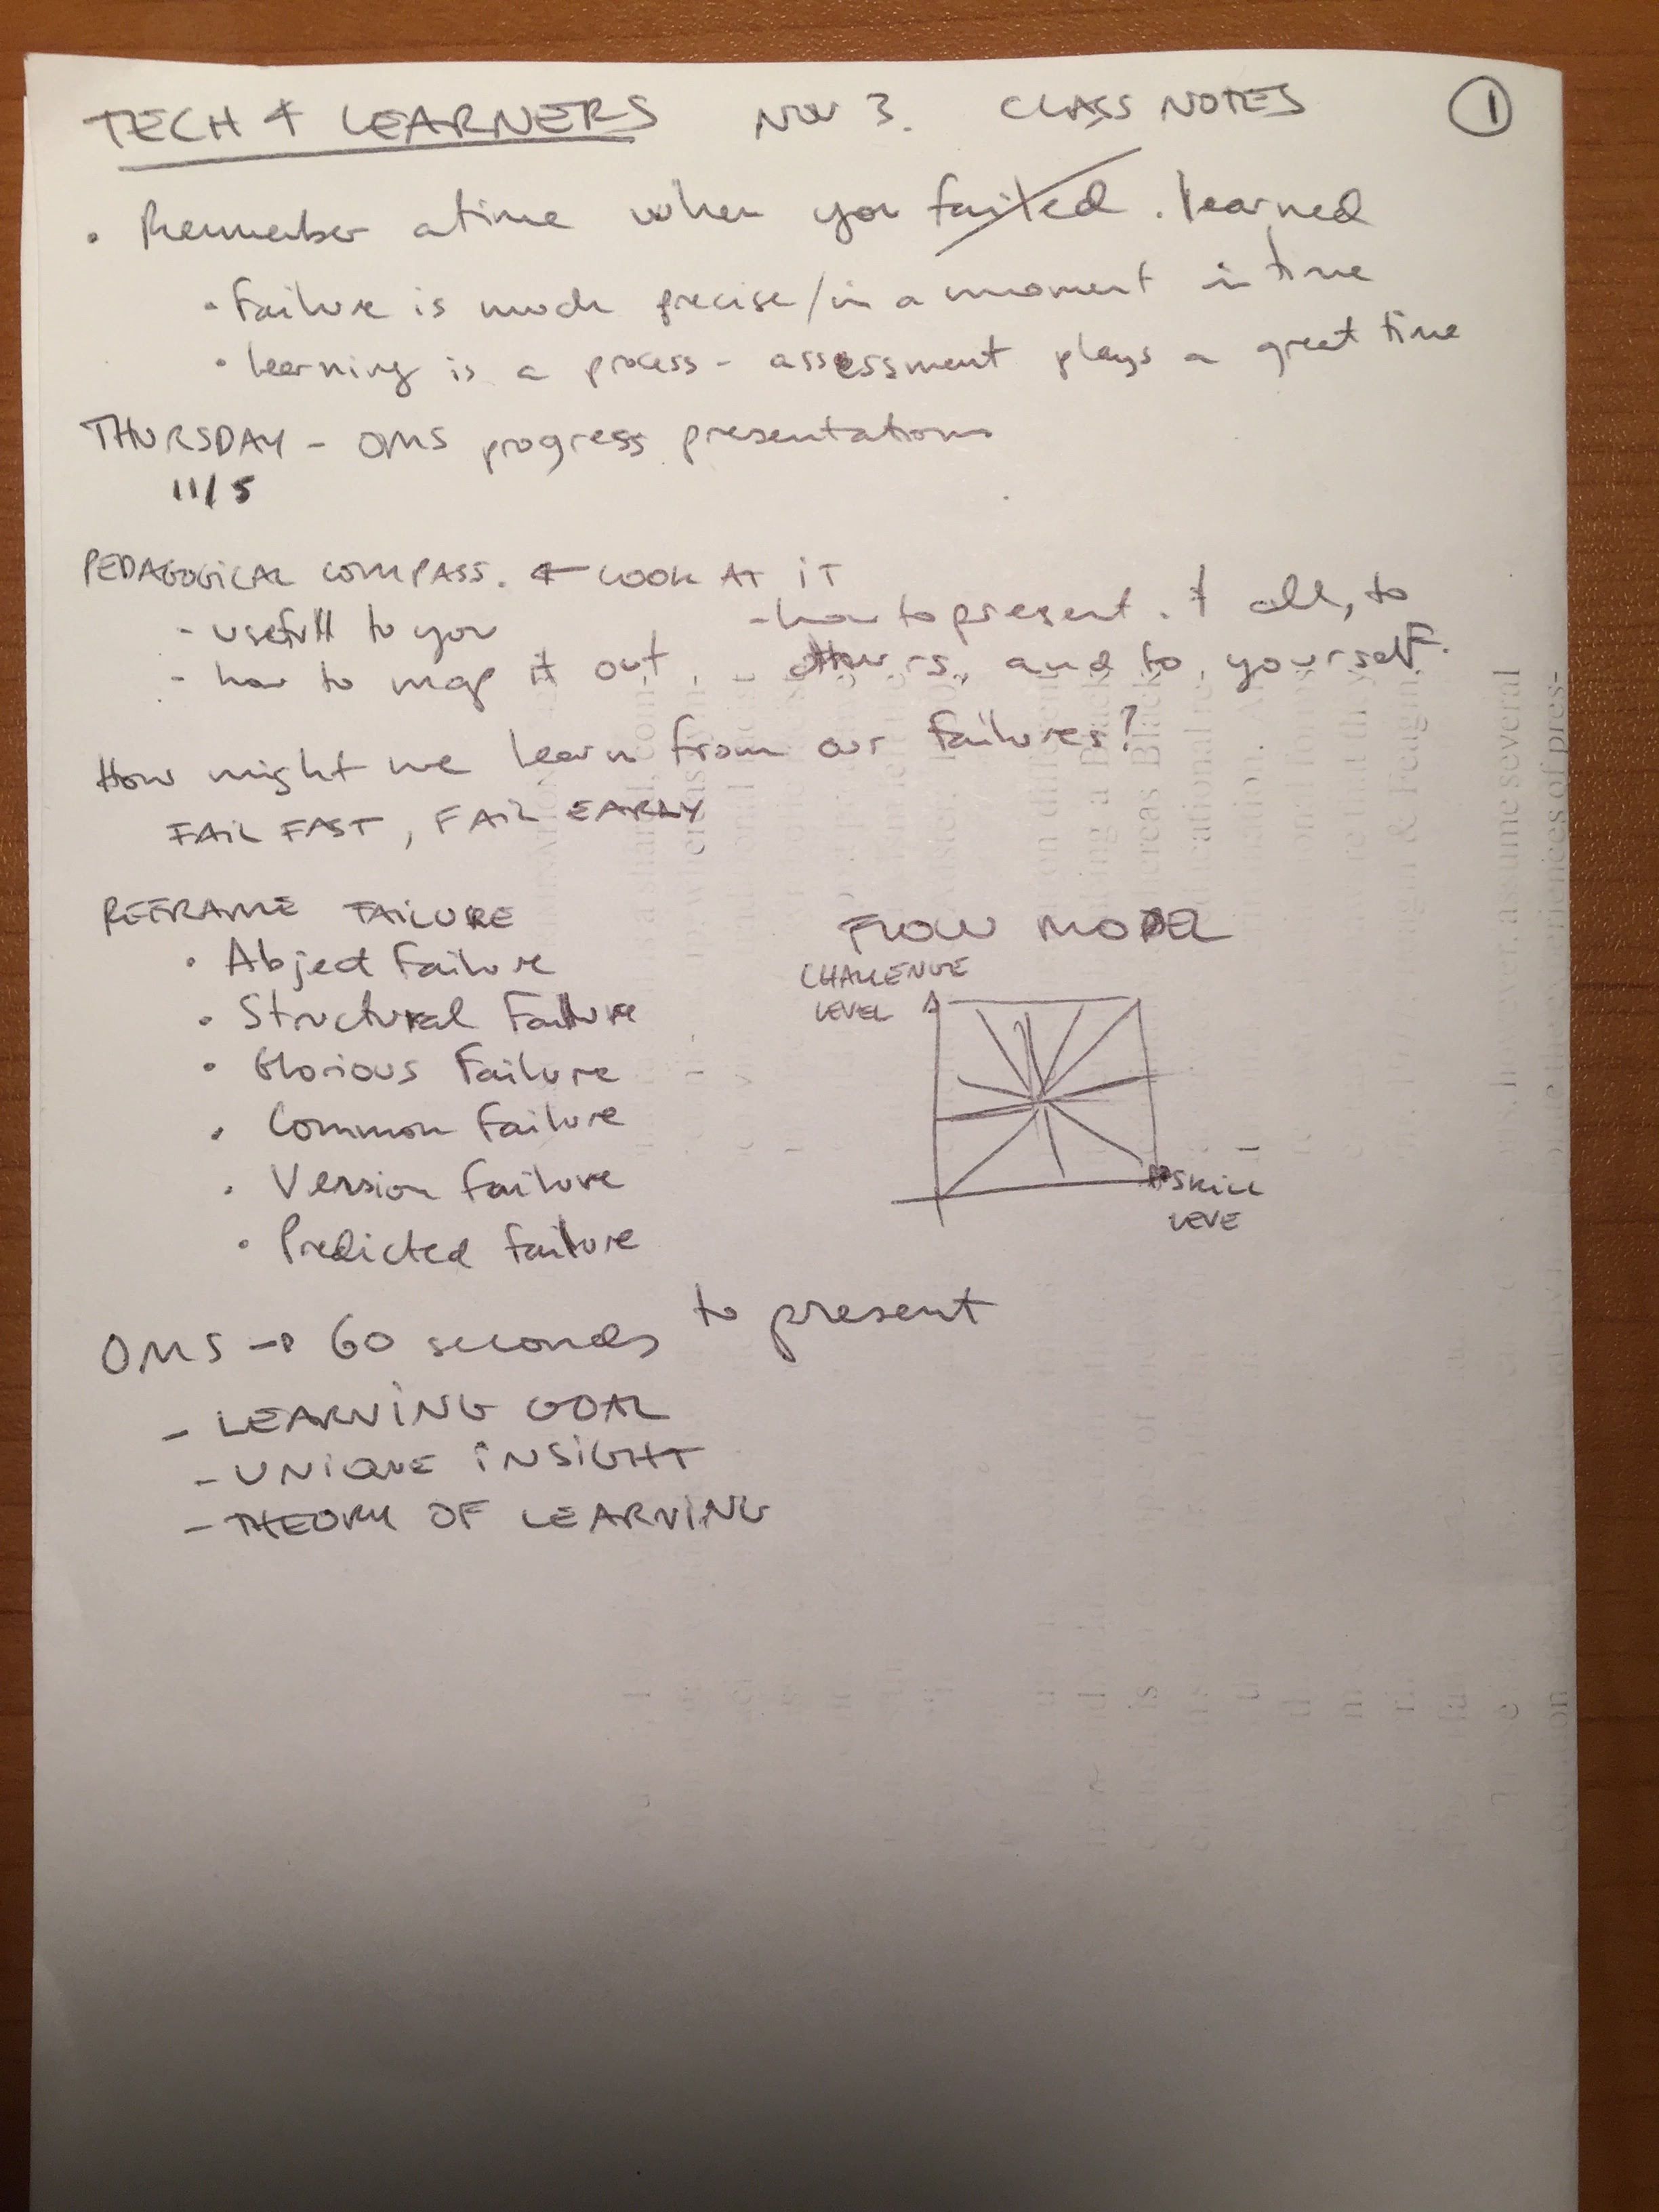 TECH & LEARNERS NOV 3. CLASS NOTES 1
• Remember a time when you failed. learned
• Failure is much precise/in a moment in time
• learning is a process - assessment plays a great time
THURSDAY - OMS progress presentations
11/5
PEDAGOGICAL COMPASS. ← LOOK AT IT
- usefull to you
- how to map it out
- how to present it all, to
others, and to yourself.
How might we learn from our failures?
FAIL FAST, FAIL EARLY
REFRAME FAILURE
• Abject Failure
• Structural Failure
• Glorious Failure
• Common Failure
• Version Failure
• Predicted Failure
FLOW MODEL
CHALLENGE
LEVEL
SKILL
LEVE
OMS → 60 seconds to present
- LEARNING GOAL
- UNIQUE INSIGHT
- THEORY OF LEARNING